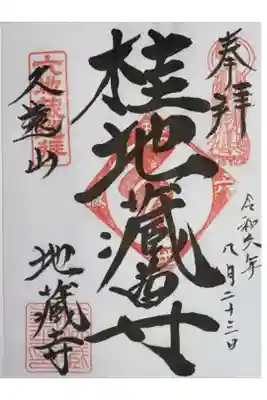 奉拝
令和六年
八月二十三日
桂地蔵尊
久遠山
地蔵寺